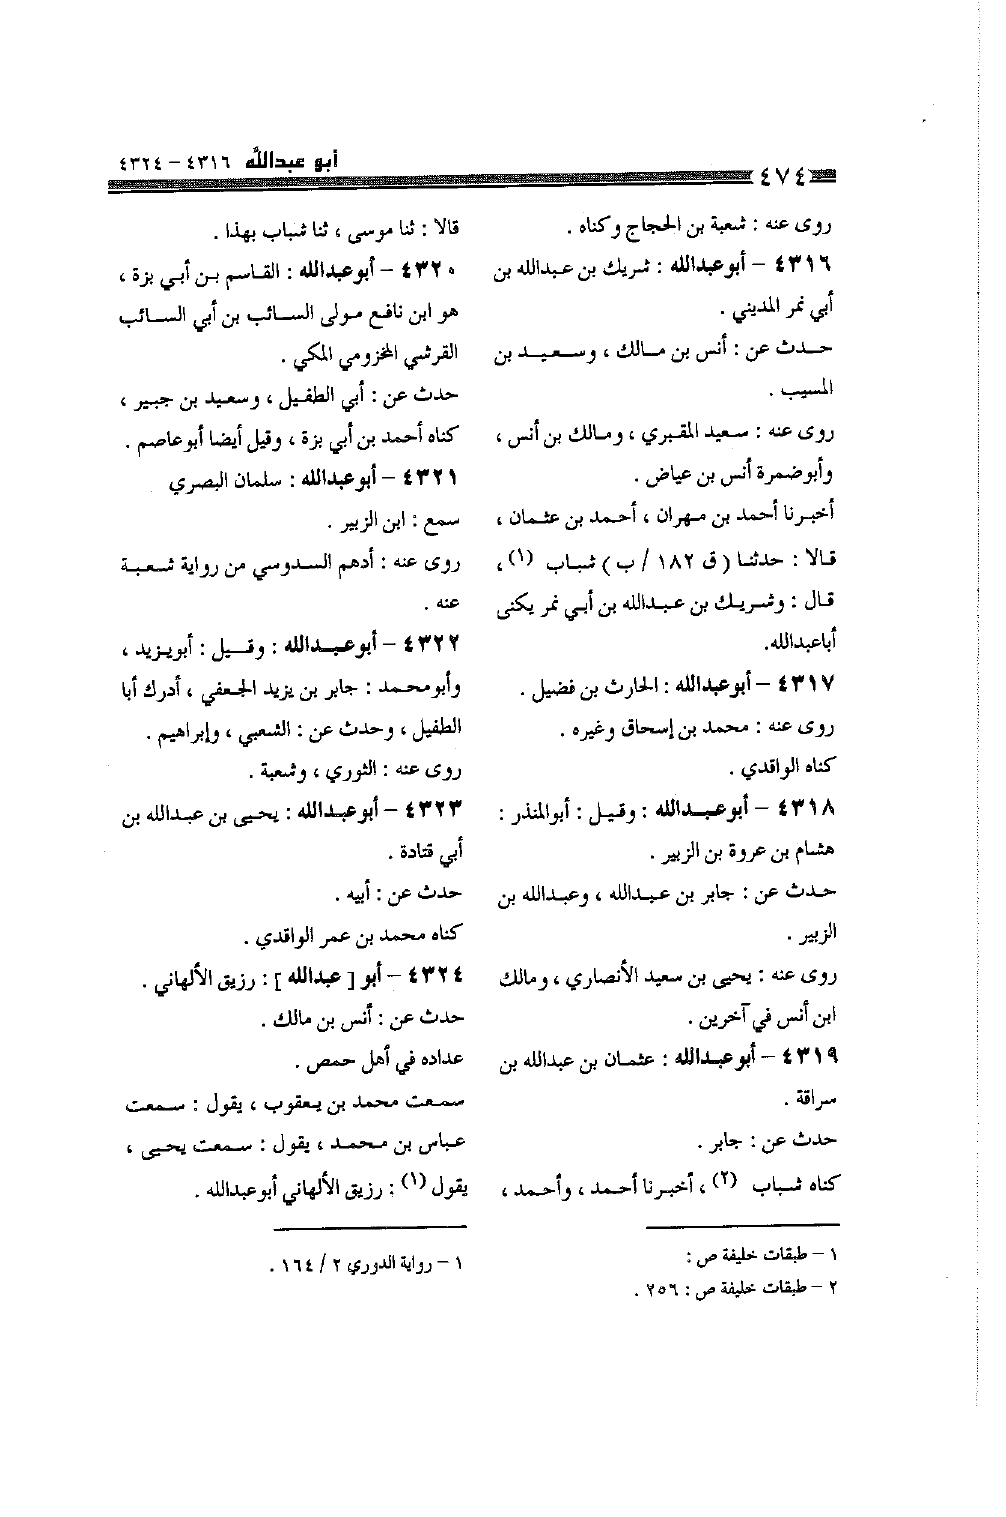 ٤٧٤
أبو عبدالله ٤٣١٦ - ٤٣٢٤
روى عنه : شعبة بن الحجاج وكناه .
٤٣١٦ - أبوعبدالله : شريك بن عبدالله بن
أبي نمر المديني .
حدث عن : أنس بن مالك ، وسعيد بن
المسيب .
روى عنه : سعيد المقبري ، ومالك بن أنس ،
وأبوضمرة أنس بن عياض .
أخبرنا أحمد بن مهران ، أحمد بن عثمان ،
قالا : حدثنا ( ق ١٨٢ / ب ) شباب (١) ،
قال : وشريك بن عبدالله بن أبي نمر يكنى
أباعبدالله.
٤٣١٧ - أبوعبدالله : الحارث بن فضيل .
روى عنه : محمد بن إسحاق وغيره .
كناه الواقدي .
٤٣١٨ - أبوعبدالله : وقيل : أبوالمنذر :
هشام بن عروة بن الزبير .
حدث عن : جابر بن عبدالله ، وعبدالله بن
الزبير .
روى عنه : يحيى بن سعيد الأنصاري ، ومالك
ابن أنس في آخرين .
٤٣١٩ - أبوعبدالله : عثمان بن عبدالله بن
سراقة .
حدث عن : جابر .
كناه شباب (٢) ، أخبرنا أحمد ، وأحمد ،
١ - طبقات خليفة ص :
٢ - طبقات خليفة ص : ٢٥٦ .
قالا : ثنا موسى ، ثنا شباب بهذا .
٤٣٢٠ - أبوعبدالله : القاسم بن أبي بزة ،
هو ابن نافع مولى السائب بن أبي السائب
القرشي المخزومي المكي .
حدث عن : أبي الطفيل ، وسعيد بن جبير ،
كناه أحمد بن أبي بزة ، وقيل أيضا أبوعاصم .
٤٣٢١ - أبوعبدالله : سلمان البصري
سمع : ابن الزبير .
روى عنه : أدهم السدوسي من رواية شعبة
عنه .
٤٣٢٢ - أبوعبدالله : وقيل : أبويزيد ،
وأبومحمد : جابر بن يزيد الجعفي ، أدرك أبا
الطفيل ، وحدث عن : الشعبي ، وإبراهيم .
روى عنه : الثوري ، وشعبة .
٤٣٢٣ - أبوعبدالله : يحيى بن عبدالله بن
أبي قتادة .
حدث عن : أبيه .
كناه محمد بن عمر الواقدي .
٤٣٢٤ - أبو [ عبدالله ] : رزيق الألهاني .
حدث عن : أنس بن مالك .
عداده في أهل حمص .
سمعت محمد بن يعقوب ، يقول : سمعت
عباس بن محمد ، يقول : سمعت يحيى ،
يقول (١) : رزيق الألهاني أبوعبدالله .
١ - رواية الدوري ٢ / ١٦٤ .